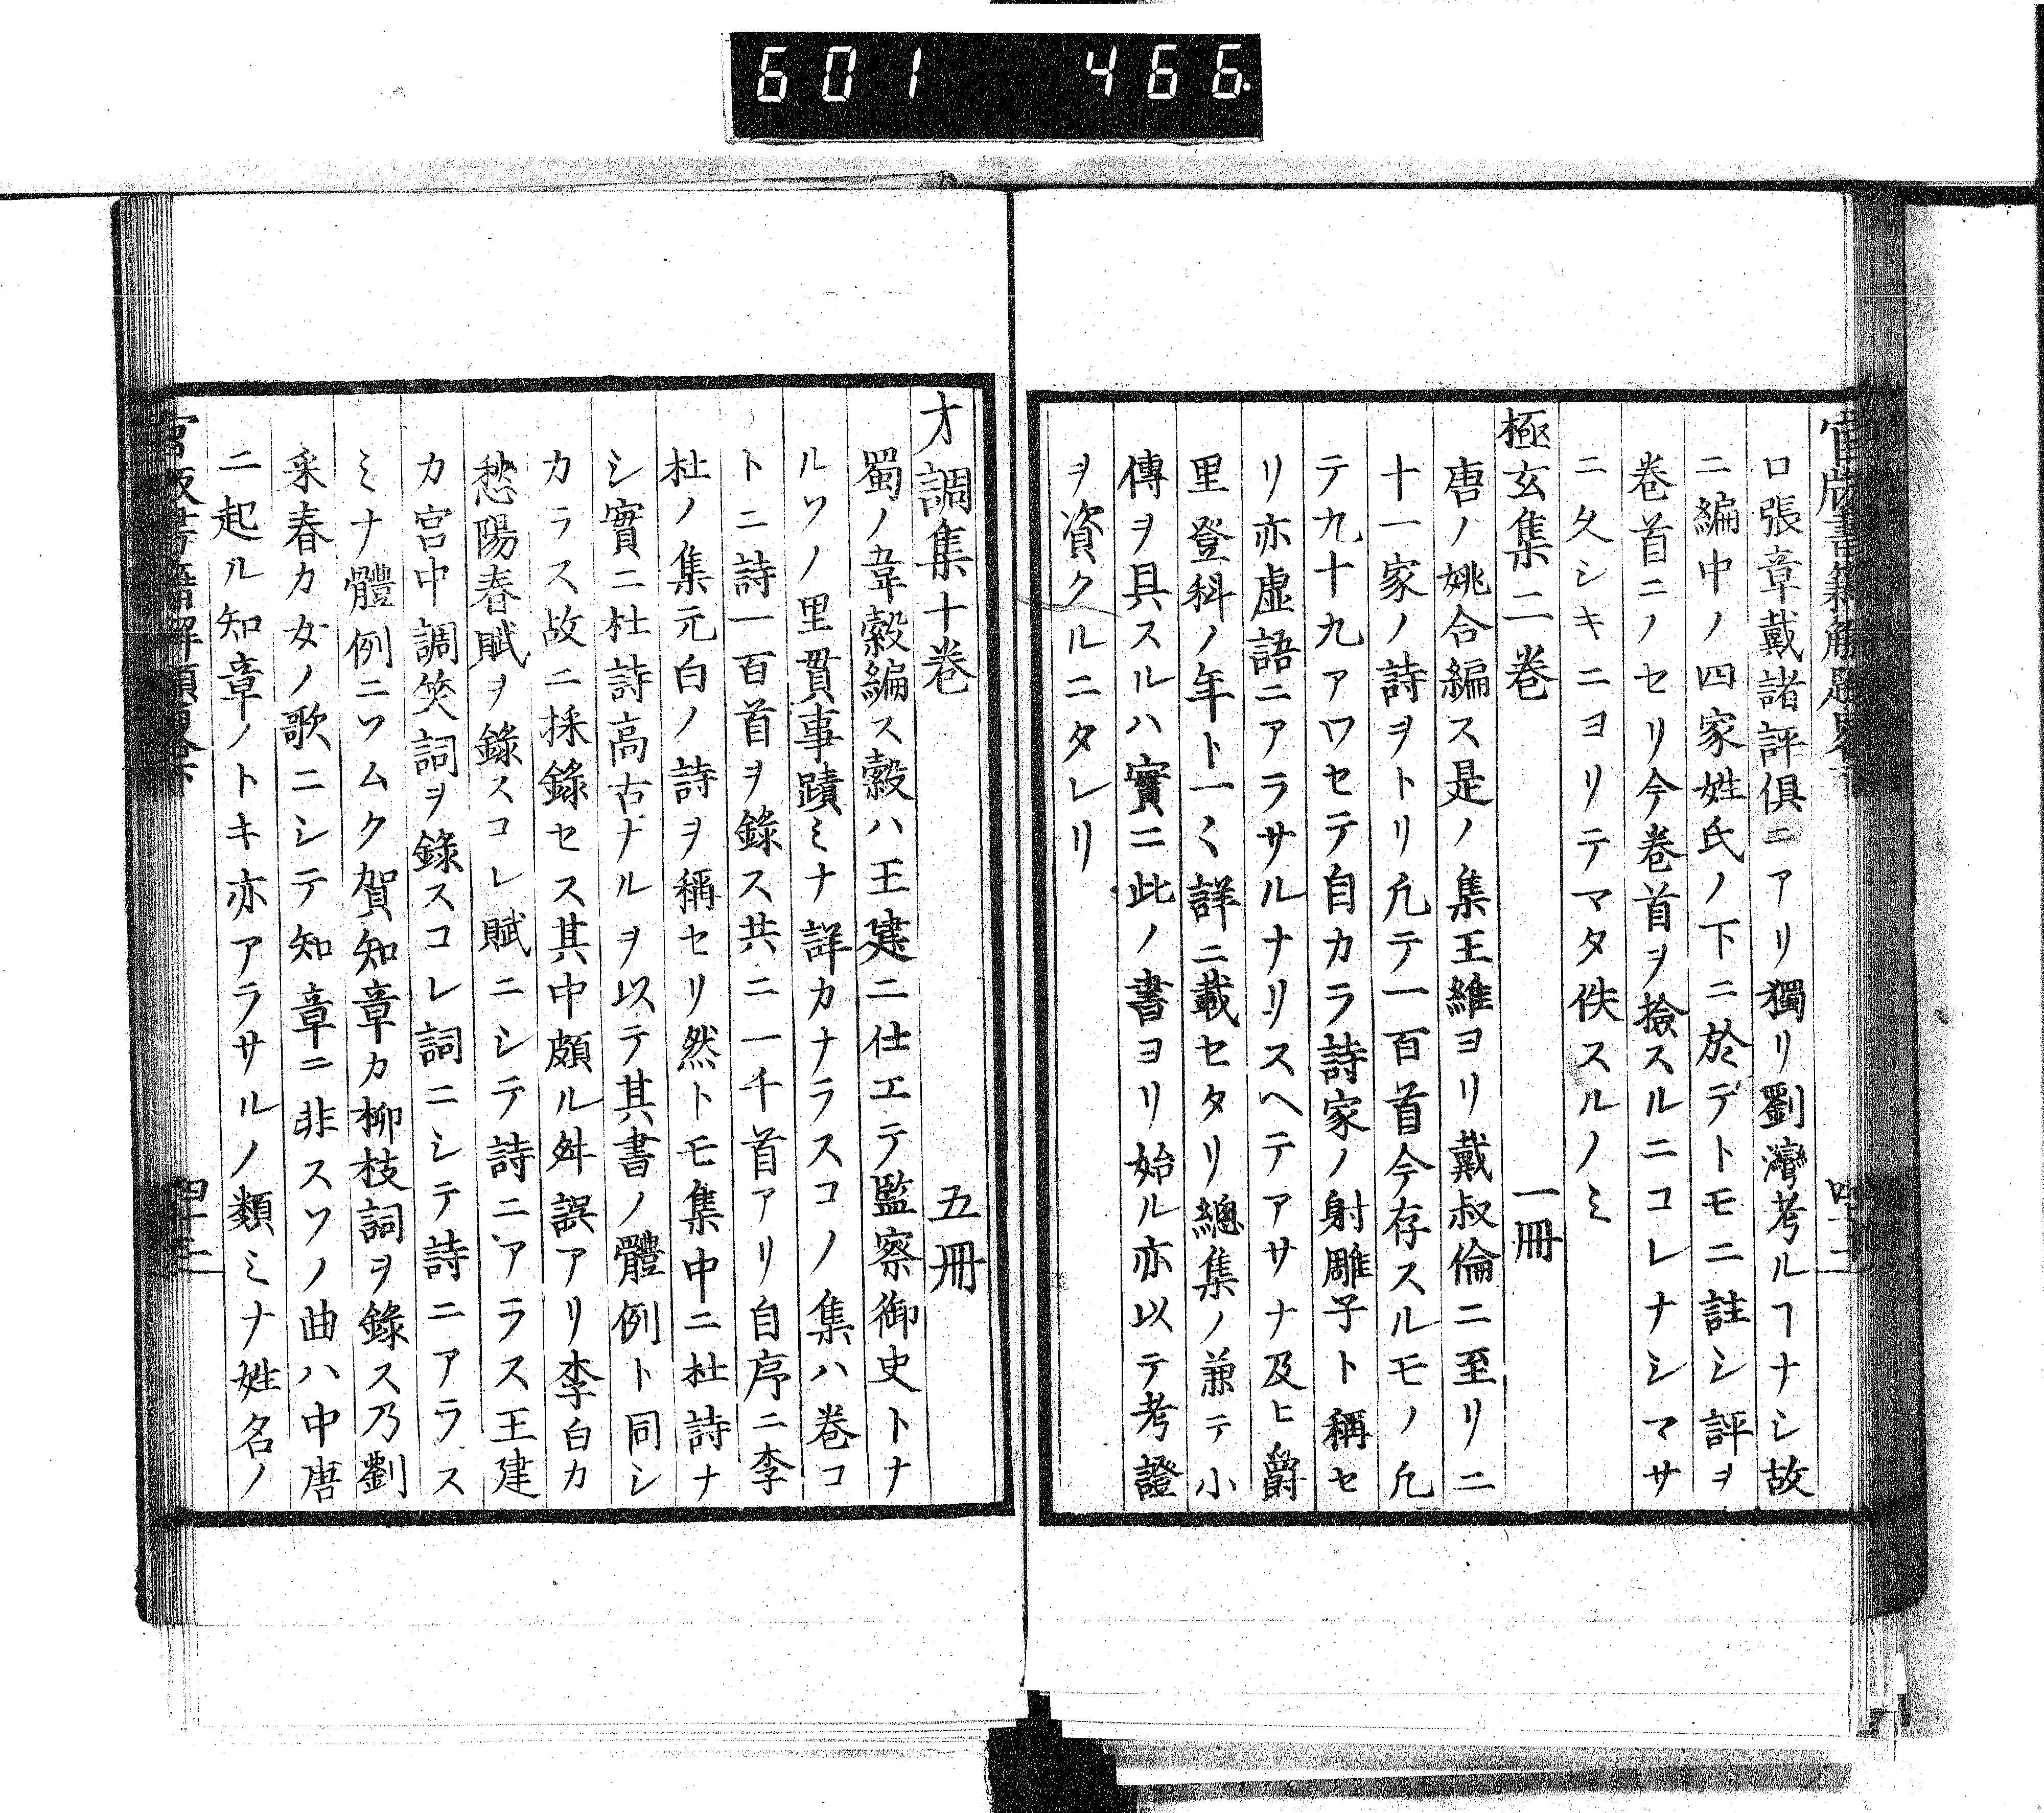 601 466.
口張章戴諸評俱ニアリ獨リ劉灣考ルヿナシ故
ニ編中ノ四家姓氏ノ下ニ於デトモニ註シ評ヲ
巻首ニノセリ今巻首ヲ撿スルニコレナシマサ
ニ久シキニヨリテマタ佚スルノミ
極玄集二巻 一冊
唐ノ姚合編ス是ノ集王維ヨリ戴叔倫ニ至リニ
十一家ノ詩ヲトリ凢テ一百首今存スルモノ凢
テ九十九アワセテ自カラ詩家ノ射雕子ト稱セ
リ亦虚語ニアラサルナリスヘテアサナ及ヒ爵
里登科ノ年ト一〻詳ニ載セタリ總集ノ兼テ小
傳ヲ具スルハ實ニ此ノ書ヨリ始ル亦以テ考證
ヲ資クルニタレリ
才調集十巻 五冊
蜀ノ韋縠編ス縠ハ王建ニ仕エテ監察御史トナ
ルソノ里貫事蹟ミナ詳カナラスコノ集ハ巻コ
トニ詩一百首ヲ錄ス共ニ一千首アリ自序ニ李
杜ノ集元白ノ詩ヲ稱セリ然トモ集中ニ杜詩ナ
シ實ニ杜詩高古ナルヲ以テ其書ノ體例ト同シ
カラス故ニ採錄セス其中頗ル舛誤アリ李白カ
愁陽春賦ヲ錄スコレ賦ニシテ詩ニアラス王建
カ宮中調笑詞ヲ錄スコレ詞ニシテ詩ニアラス
ミナ體例ニソムク賀知章カ柳枝詞ヲ錄ス乃劉
采春カ女ノ歌ニシテ知章ニ非スソノ曲ハ中唐
ニ起ル知章ノトキ亦アラサルノ類ミナ姓名ノ